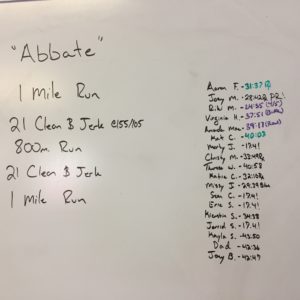 "Abbate"
1 Mile Run
21 Clean & Jerk @155/105
800m Run
21 Clean & Jerk
1 Mile Run
Aaron F. - 31:37
Joey M. - 28:42 PR!
Riki M. - 24:35
Virginia H. - 37:51
Amanda Mae - 39:13
Kat C. - 40:03
Marty J. - 17:41
Christy M. - 33:49
Thomas W. - 40:58
Katie C. - 32:10
Missy J. - 29:39
Sean C. - 17:41
Eric S. - 17:41
Kierstin S. - 34:38
Jarrid S. - 17:41
Kayla S. - 43:50
Dad - 42:36
Jay B. - 42:47